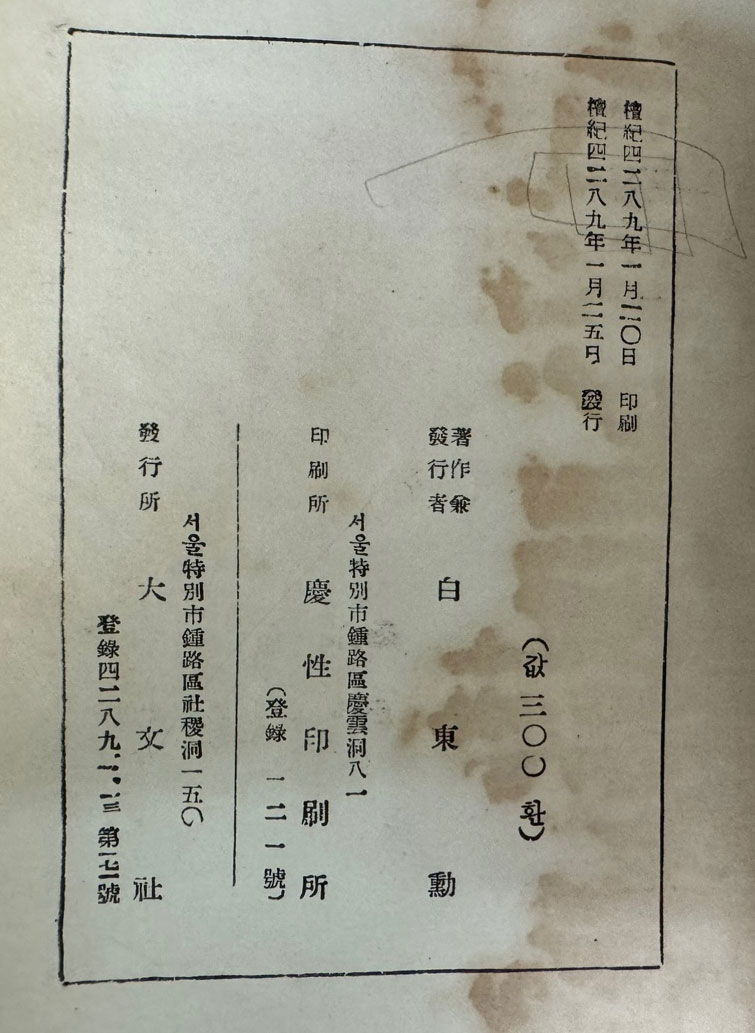 檀紀四二八九年一月二〇日 印刷
檀紀四二八九年一月二五日 發行
(값 三〇〇 환)
著作兼
發行者 白東勳
서울特別市鍾路區慶雲洞八一
印刷所 慶性印刷所
(登錄 一二一號)
서울特別市鍾路區社稷洞一五〇
發行所 大文社
登錄四二八九.一.一三 第一七一號